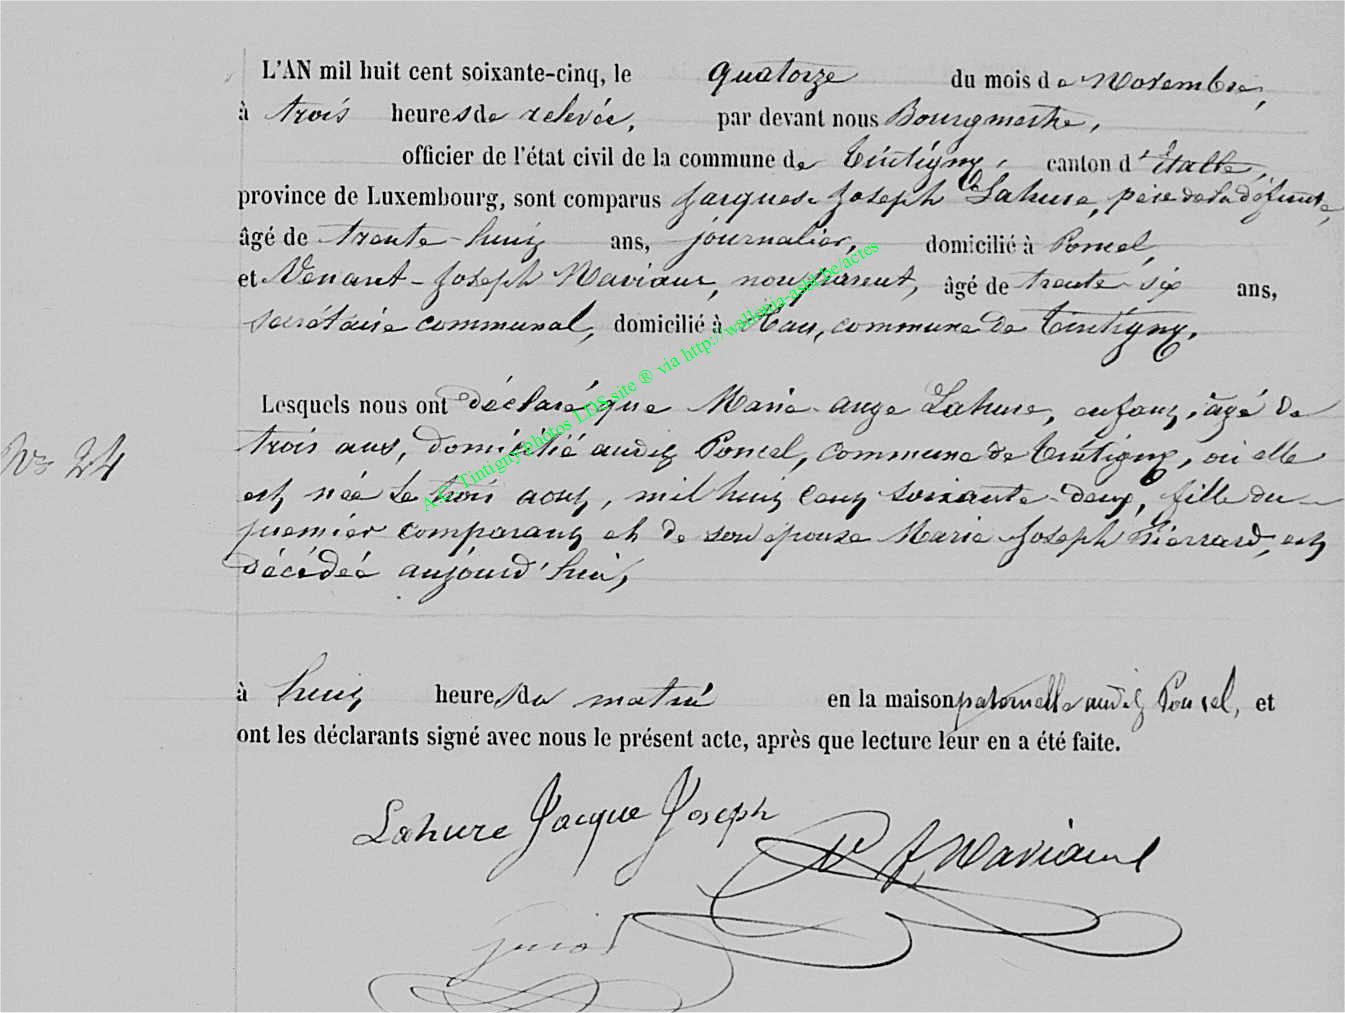 L'AN mil huit cent soixante-cinq, le quatorze du mois de Novembre,
à trois heures de relevée, par devant nous Bourgmestre,
officier de l'état civil de la commune de Tintigny, canton d'Etalle,
province de Luxembourg, sont comparus Jacques Joseph Lahure, père de la défunte,
âgé de trente-huit ans, journalier, domicilié à Poncel,
et Venant-Joseph Maviaux, non parent, âgé de trente-six ans,
secrétaire communal, domicilié à Han, commune de Tintigny.
A.C. Tintigny photos LDS site ® via http://wallonia-asbl.be/actes
Lesquels nous ont déclaré que Marie-ange Lahure, enfant, âgé de
N° 24
trois ans, domicilié audit Poncel, commune de Tintigny, où elle
est née le trois août, mil huit cent soixante-deux, fille du
premier comparant et de son épouse Marie-Joseph Pierrard, est
décédée aujourd'hui,
à huit heures du matin en la maison paternelle audit Poncel, et
ont les déclarants signé avec nous le présent acte, après que lecture leur en a été faite.
Lahure Jacque Joseph
V J Maviaux